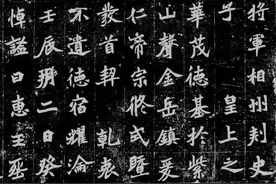 將軍相州刺史
子 皇上之
華茂德基於紫
山聲金岳鎮爰
仁帝宗脩式暨
首契 乾衷
不遺德宿耀淪
壬辰朔二日癸
悼謚曰惠王